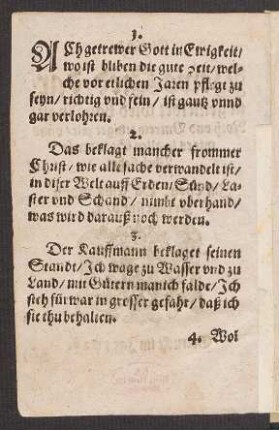 1.
ACh getrewer Gott in Ewigkeit/
wo ist bliben die gute zeit/ wel-
che vor etlichen Jaren pflegt zu
seyn/ richtig vnd fein/ ist gantz vnnd
gar verlohren.
2.
Das beklagt mancher frommer
Christ/ wie alle sache verwandelt ist/
in diser Welt auff Erden/ Sünd/ La-
ster vnd Schand/ nimbt vberhand/
was wird darauß noch werden.
3.
Der Kauffmann beklaget seinen
Standt/ Ich wage zu Wasser vnd zu
Land/ mit Gütern manich falde/ Ich
sieh fürwar in grosser gefahr/ daß ich
sie thu behalten.
4. Wol